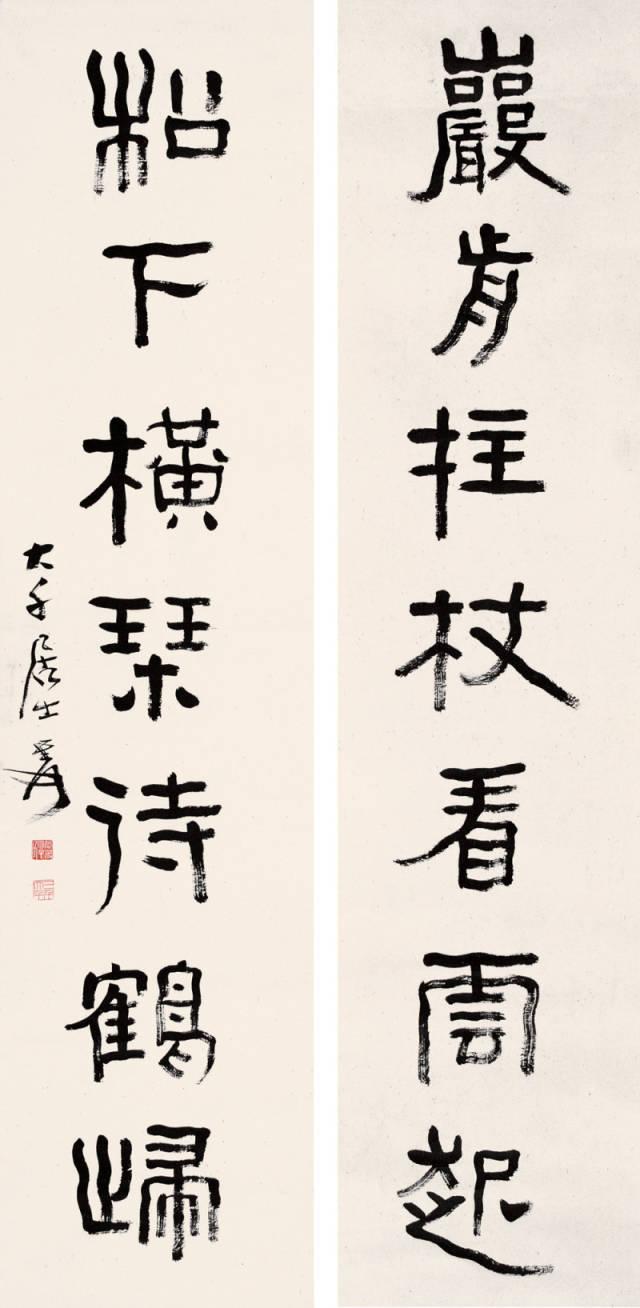 巖前拄杖看雲起
松下橫琹待鶴歸
大千居士爰